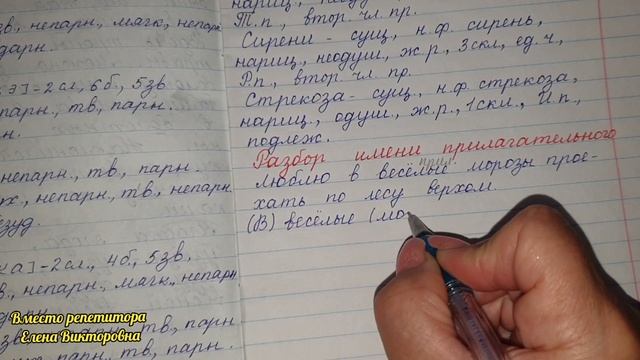 зв., непарн., мягк., непарн.
дарн.
э] = 2 сл., 6 б., 5 зв.
парн., тв., парн.
н.
непарн., тв., парн.
непарн., тв., непарн.
езуд.
а] = 2 сл., 4 б., 5 зв.
в., непарн., мягк., непарн
тв., парн
парн., тв., парн.
нариц.,
Т.п., втор. чл. пр.
Сирени - сущ., н.ф. сирень,
нариц., неодуш., ж.р., 3 скл., ед.ч.,
Р.п., втор. чл. пр.
Стрекоза - сущ., н.ф. стрекоза,
нариц., одуш., ж.р., 1 скл., И.п.,
подлеж.
Разбор имени прилагательного
прил.
Люблю в весёлые морозы прое-
хать по лесу верхом.
(В) весёлые (мо
Вместо репетитора
Елена Викторовна